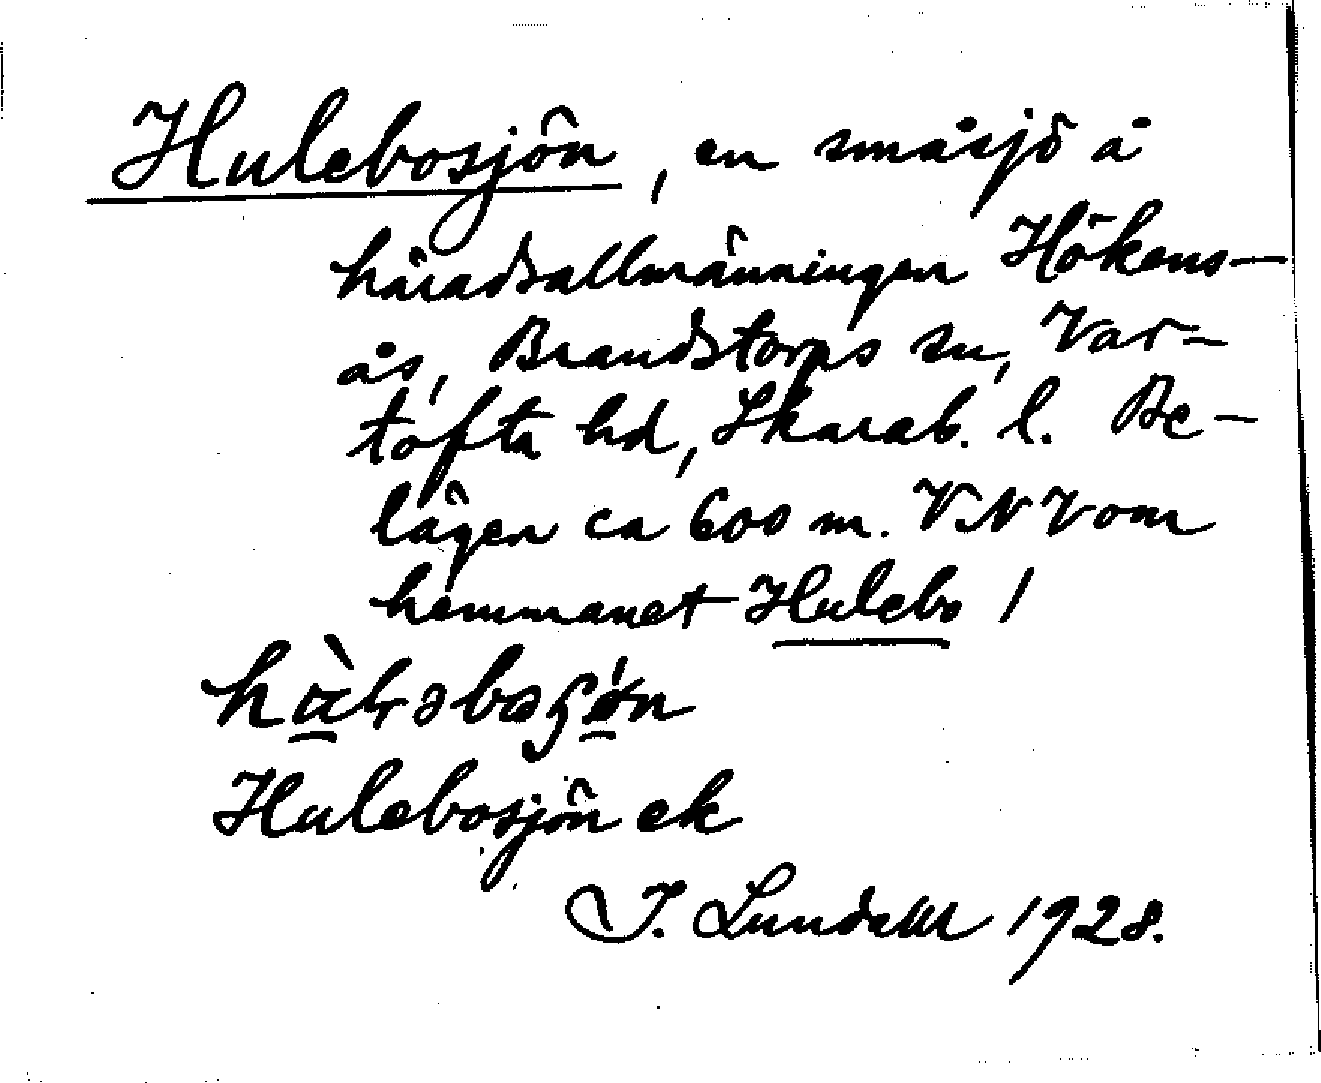 Hulebosjön, en småsjö å
häradsallmänningen Hökens-
ås, Brandstorps sn, Var-
tofta hd, Skarab. l. Be-
lägen ca 600 m. VNV om
hemmanet Hulebo /
Hulebosjön ek
I. Lundahl 1928.